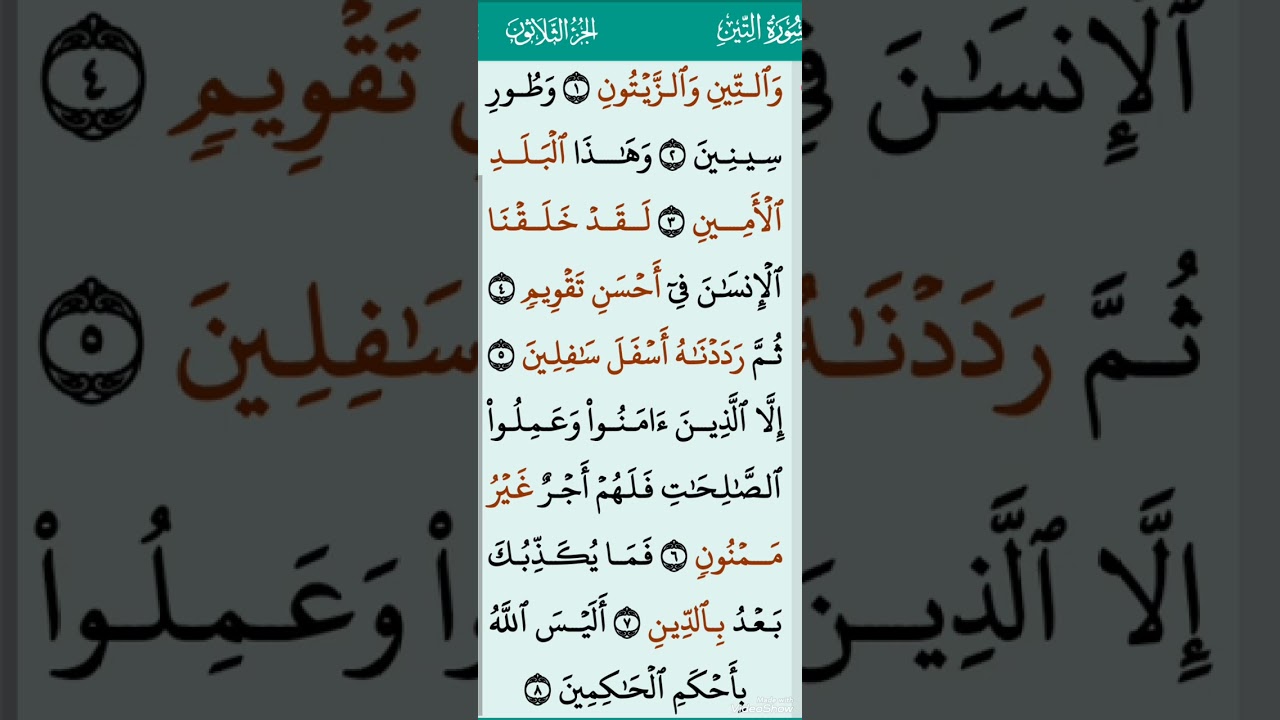 سُورَةُ التِّينِ الجُزْءُ الثَّلَاثُونَ
وَٱلتِّينِ وَٱلزَّيْتُونِ ١ وَطُورِ
سِينِينَ ٢ وَهَٰذَا ٱلْبَلَدِ
ٱلْأَمِينِ ٣ لَقَدْ خَلَقْنَا
ٱلْإِنسَٰنَ فِىٓ أَحْسَنِ تَقْوِيمٍ ٤
ثُمَّ رَدَدْنَٰهُ أَسْفَلَ سَٰفِلِينَ ٥
إِلَّا ٱلَّذِينَ ءَامَنُوا۟ وَعَمِلُوا۟
ٱلصَّٰلِحَٰتِ فَلَهُمْ أَجْرٌ غَيْرُ
مَمْنُونٍ ٦ فَمَا يُكَذِّبُكَ
بَعْدُ بِٱلدِّينِ ٧ أَلَيْسَ ٱللَّهُ
بِأَحْكَمِ ٱلْحَٰكِمِينَ ٨
Made with
VideoShow